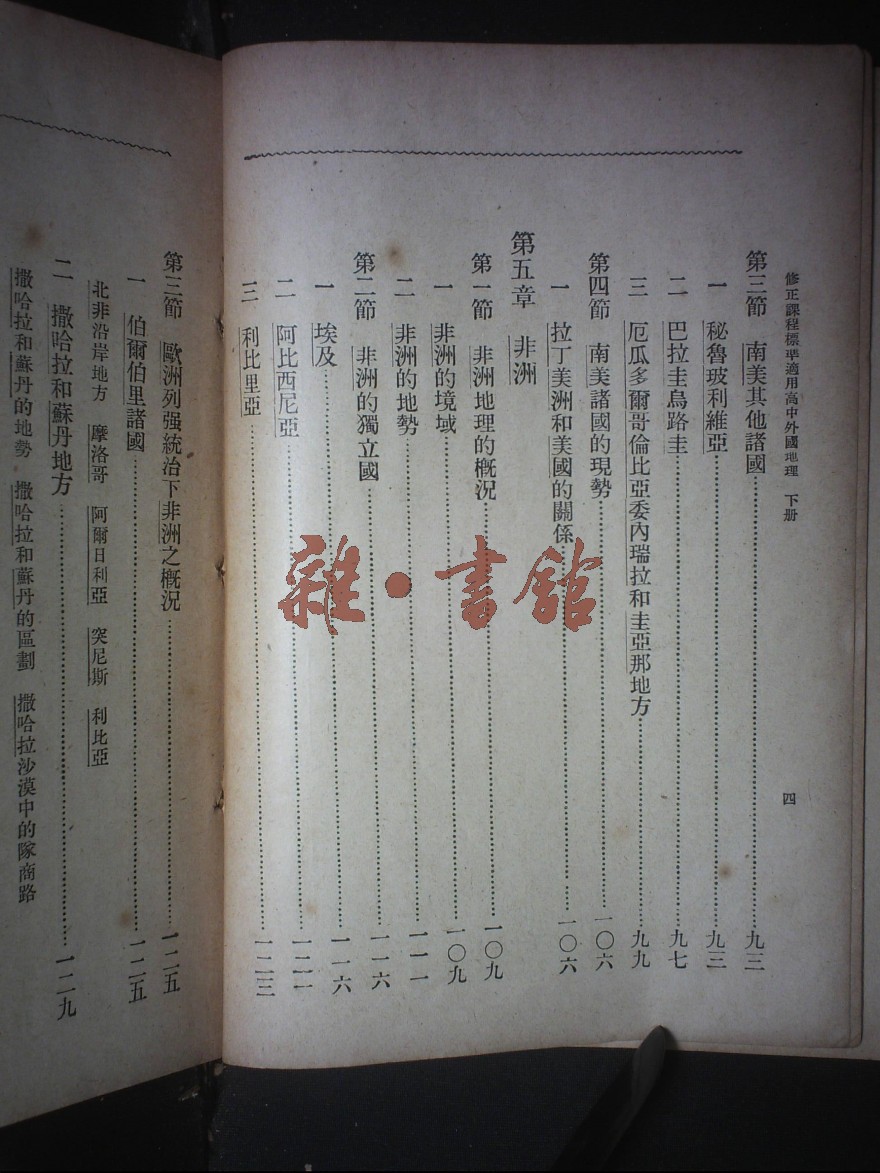 修正課程標準適用高中外國地理　下册
四
第三節　南美其他諸國……九三
一　秘魯玻利維亞……九三
二　巴拉圭烏路圭……九七
三　厄瓜多爾哥倫比亞委內瑞拉和圭亞那地方……九九
第四節　南美諸國的現勢……一〇六
一　拉丁美洲和美國的關係……一〇六
第五章　非洲
第一節　非洲地理的概況……一〇九
一　非洲的境域……一〇九
二　非洲的地勢……一一一
第二節　非洲的獨立國……一一六
一　埃及……一一六
二　阿比西尼亞……一二一
三　利比里亞……一二三
第三節　歐洲列强統治下非洲之概況……一二五
一　伯爾伯里諸國……一二五
北非沿岸地方　摩洛哥　阿爾日利亞　突尼斯　利比亞
二　撒哈拉和蘇丹地方……一二九
撒哈拉和蘇丹的地勢　撒哈拉和蘇丹的區劃　撒哈拉沙漠中的隊商路
雜·書館